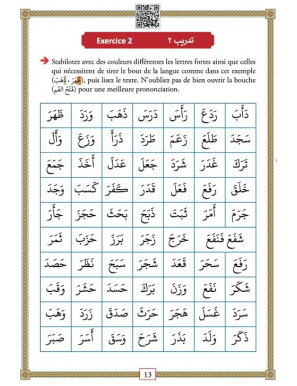 Exercice 2 تدريب ٢
Stabilotez avec des couleurs différentes les lettres fortes ainsi que celles
qui nécessitent de tirer le bout de la langue comme dans cet exemple
(ظَهَرَ - ذَهَبَ), puis lisez le texte. N'oubliez pas de bien ouvrir la bouche
(فَتْحُ الفَمِ) pour une meilleure prononciation.
دَأَبَ رَدَعَ رَأَسَ دَرَسَ ذَهَبَ وَرَدَ ظَهَرَ
سَجَدَ طَلَعَ زَعَمَ طَرَدَ ذَرَأَ وَزَعَ وَأَلَ
تَرَكَ غَدَرَ شَرَدَ جَعَلَ عَدَلَ أَخَذَ جَمَعَ
خَلَقَ رَفَعَ فَعَلَ قَدَرَ كَفَرَ كَسَبَ وَجَدَ
جَرَمَ أَمَرَ ثَبَتَ ذَبَحَ بَحَثَ حَجَزَ جَأَرَ
شَفَعَ فَنَفَعَ خَرَجَ زَجَرَ بَرَزَ حَزَبَ ثَمَرَ
رَفَعَ سَحَرَ قَعَدَ شَجَرَ سَبَحَ نَظَرَ حَصَدَ
شَكَرَ نَفَعَ وَزَنَ بَرَكَ حَسَدَ حَشَرَ وَقَبَ
سَرَدَ غَسَلَ هَجَرَ حَرَثَ صَدَقَ زَرَدَ وَهَبَ
ذَكَرَ وَلَدَ بَذَرَ شَرَحَ وَسَقَ أَسَرَ صَبَرَ
13